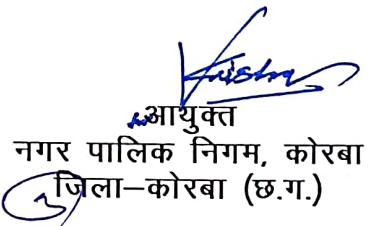 आयुक्त
नगर पालिक निगम, कोरबा
जिला–कोरबा (छ.ग.)